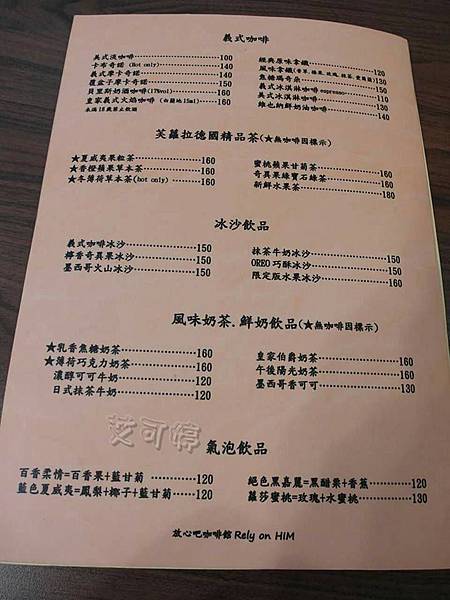 義式咖啡
美式淡咖啡 100
卡布奇諾 (Hot only) 140
義式摩卡奇諾 140
覆盆子摩卡奇諾 140
貝里斯奶酒咖啡(17%vol) 160
皇家義式火焰咖啡 (白蘭地15ml) 160
未滿18歲禁止飲酒
經典原味拿鐵 120
風味拿鐵 130
焦糖瑪奇朵 150
義式冰淇淋咖啡 espresso 110
義式冰淇淋咖啡 140
維也納鮮奶油咖啡 140
芙蘿拉德國精品茶(★無咖啡因標示)
★夏威夷果粒茶 160
★香橙蘋果草本茶 160
★冬薄荷草本茶(hot only) 160
蜜桃蘋果甘菊茶 160
奇異果綠寶石綠茶 160
新鮮水果茶 180
冰沙飲品
義式咖啡冰沙 150
檸香奇異果冰沙 150
墨西哥火山冰沙 150
抹茶牛奶冰沙 150
OREO巧酥冰沙 150
限定版水果冰沙 160
風味奶茶.鮮奶飲品(★無咖啡因標示)
★乳香焦糖奶茶 160
★薄荷巧克力奶茶 160
濃醇可可牛奶 120
日式抹茶牛奶 120
皇家伯爵奶茶 160
午後陽光奶茶 160
墨西哥香可可 130
艾可婷
氣泡飲品
百香柔情=百香果+藍甘菊 120
藍色夏威夷=鳳梨+椰子+藍甘菊 120
絕色黑嘉麗=黑醋栗+香蕉 120
蘿莎蜜桃=玫瑰+水蜜桃 130
放心吧咖啡館 Rely on HIM